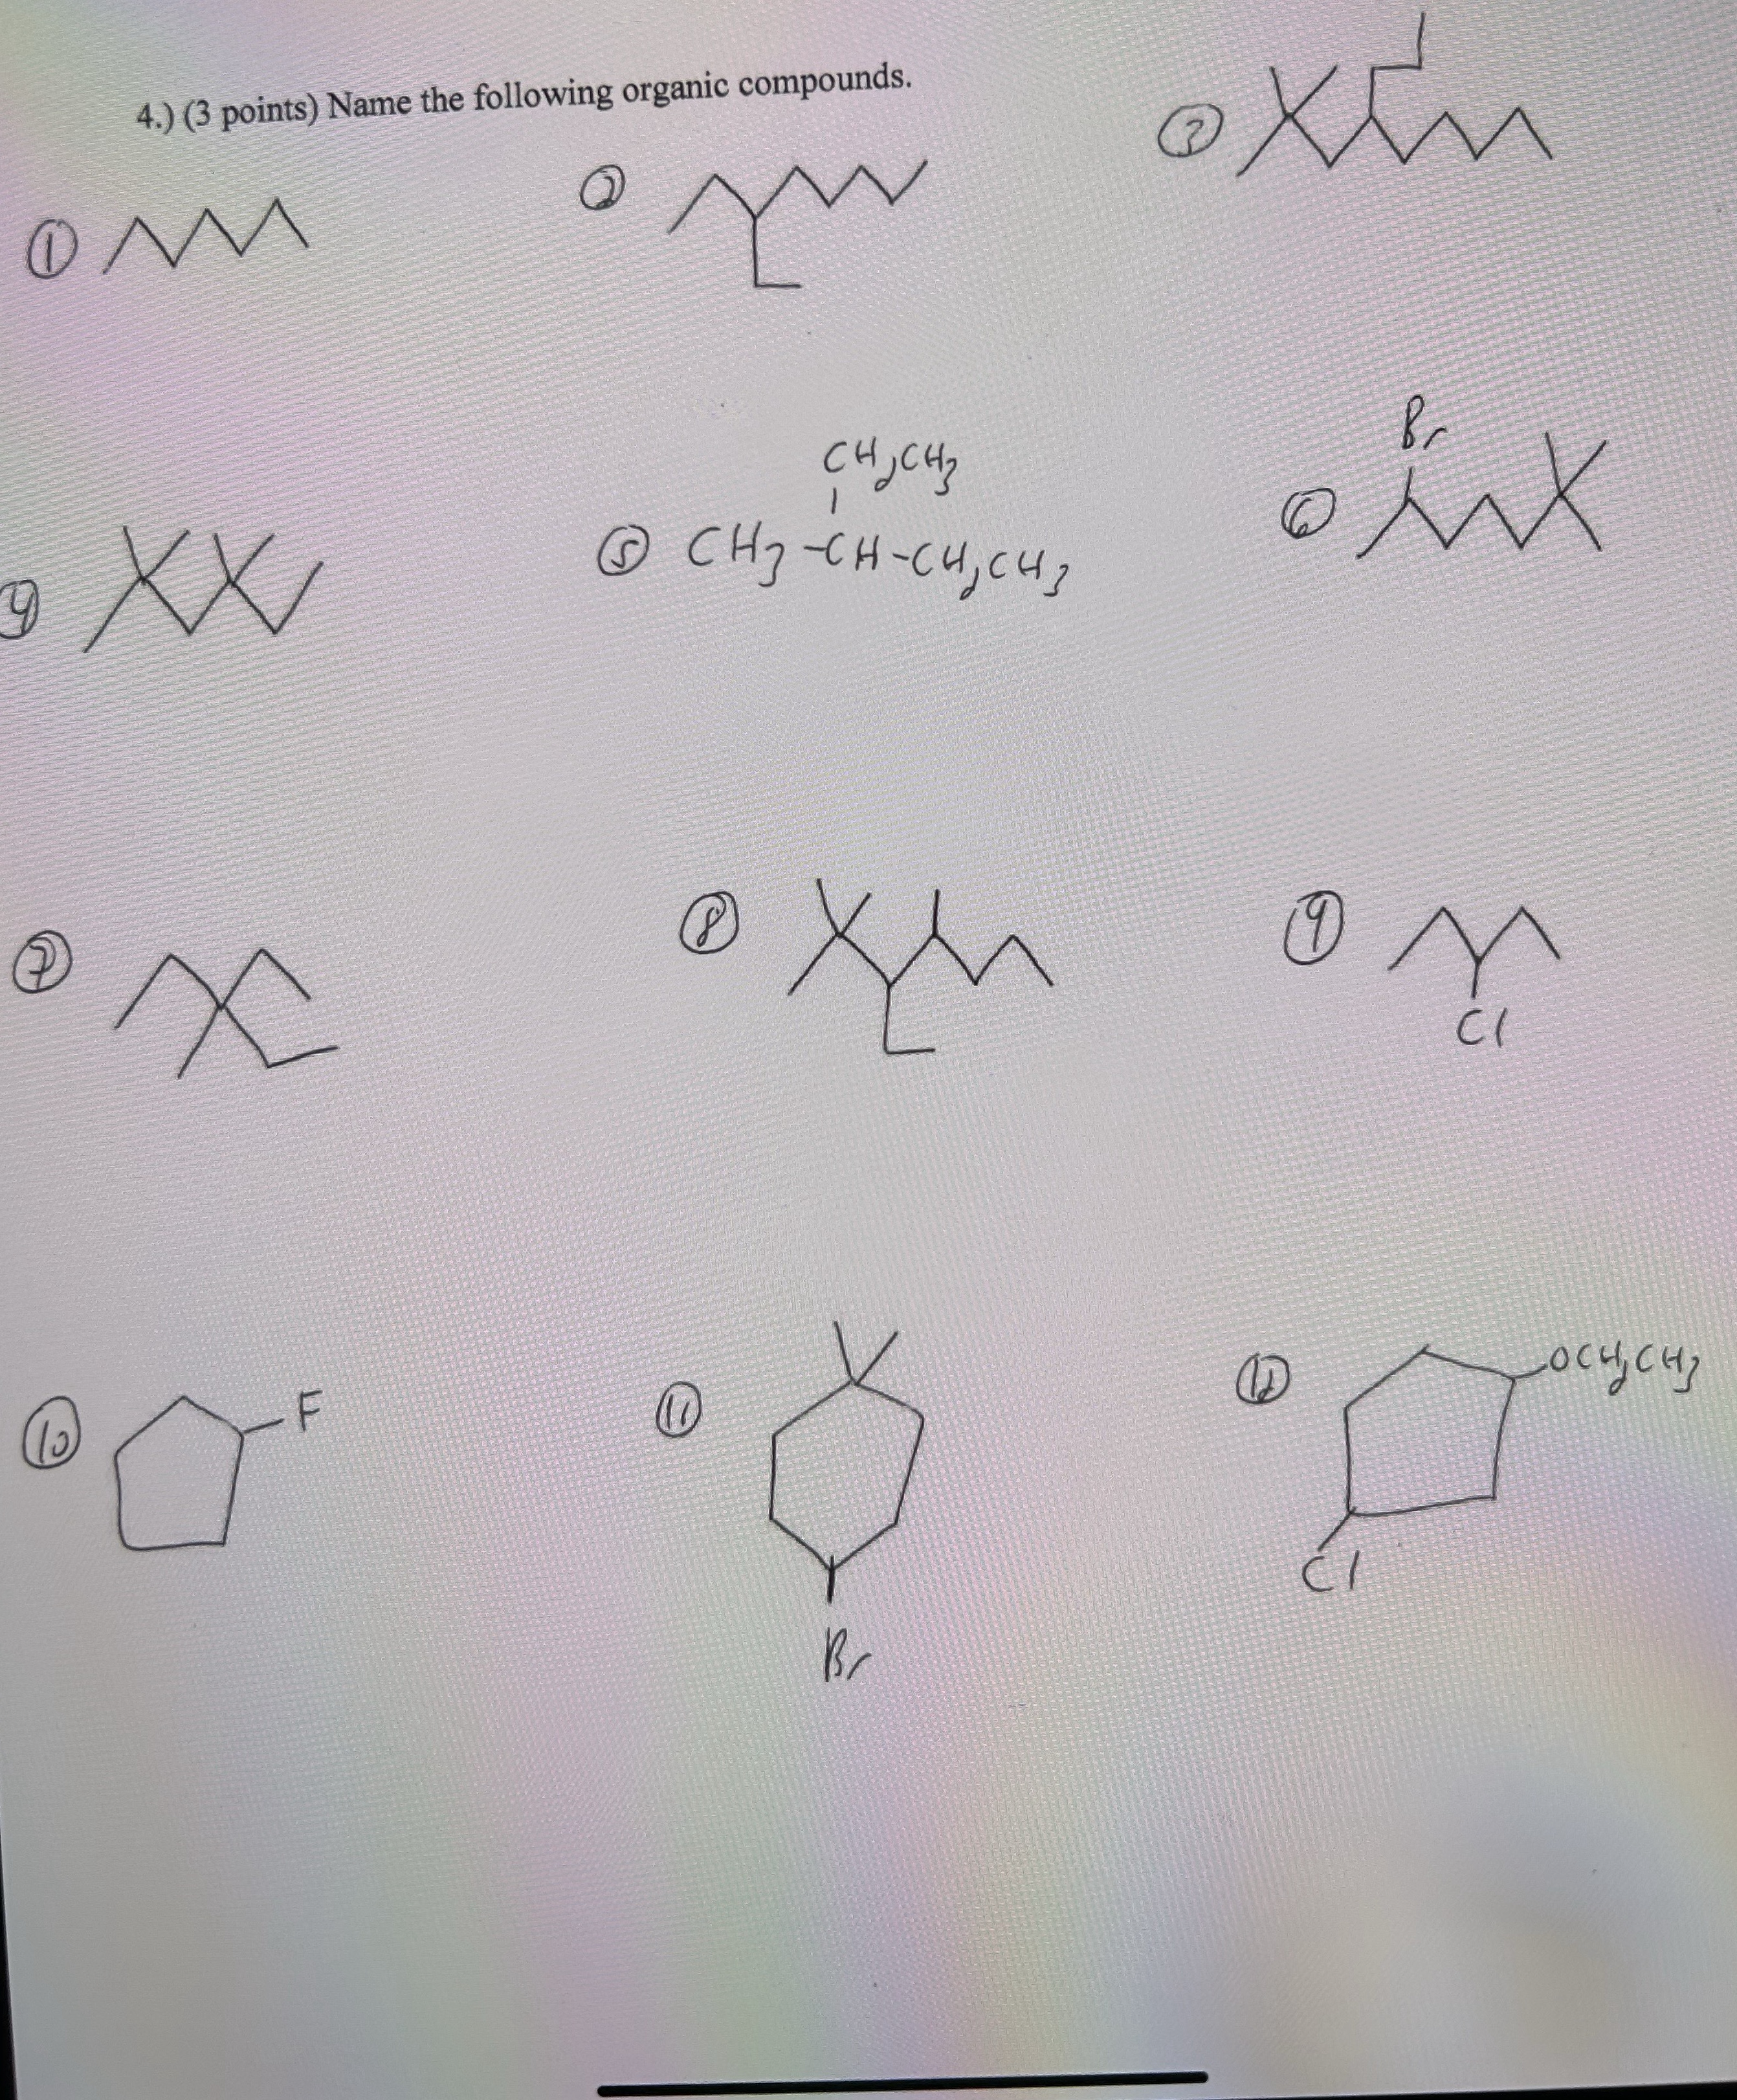 4.) (3 points) Name the following organic compounds.
①
②
③
④
⑤ CH3-CH-CH2CH3
CH2CH3
⑥
Br
⑦
⑧
⑨
Cl
⑩
F
⑪
Br
⑫
OCH2CH3
Cl